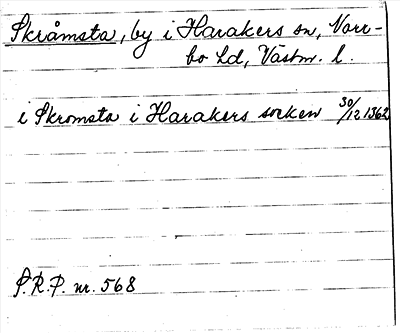 Skråmsta, by i Harakers sn, Norr-
bo hd, Västm. l.
i Skromsta i Harakers socken 30/12 1362
S.R.P. nr. 568